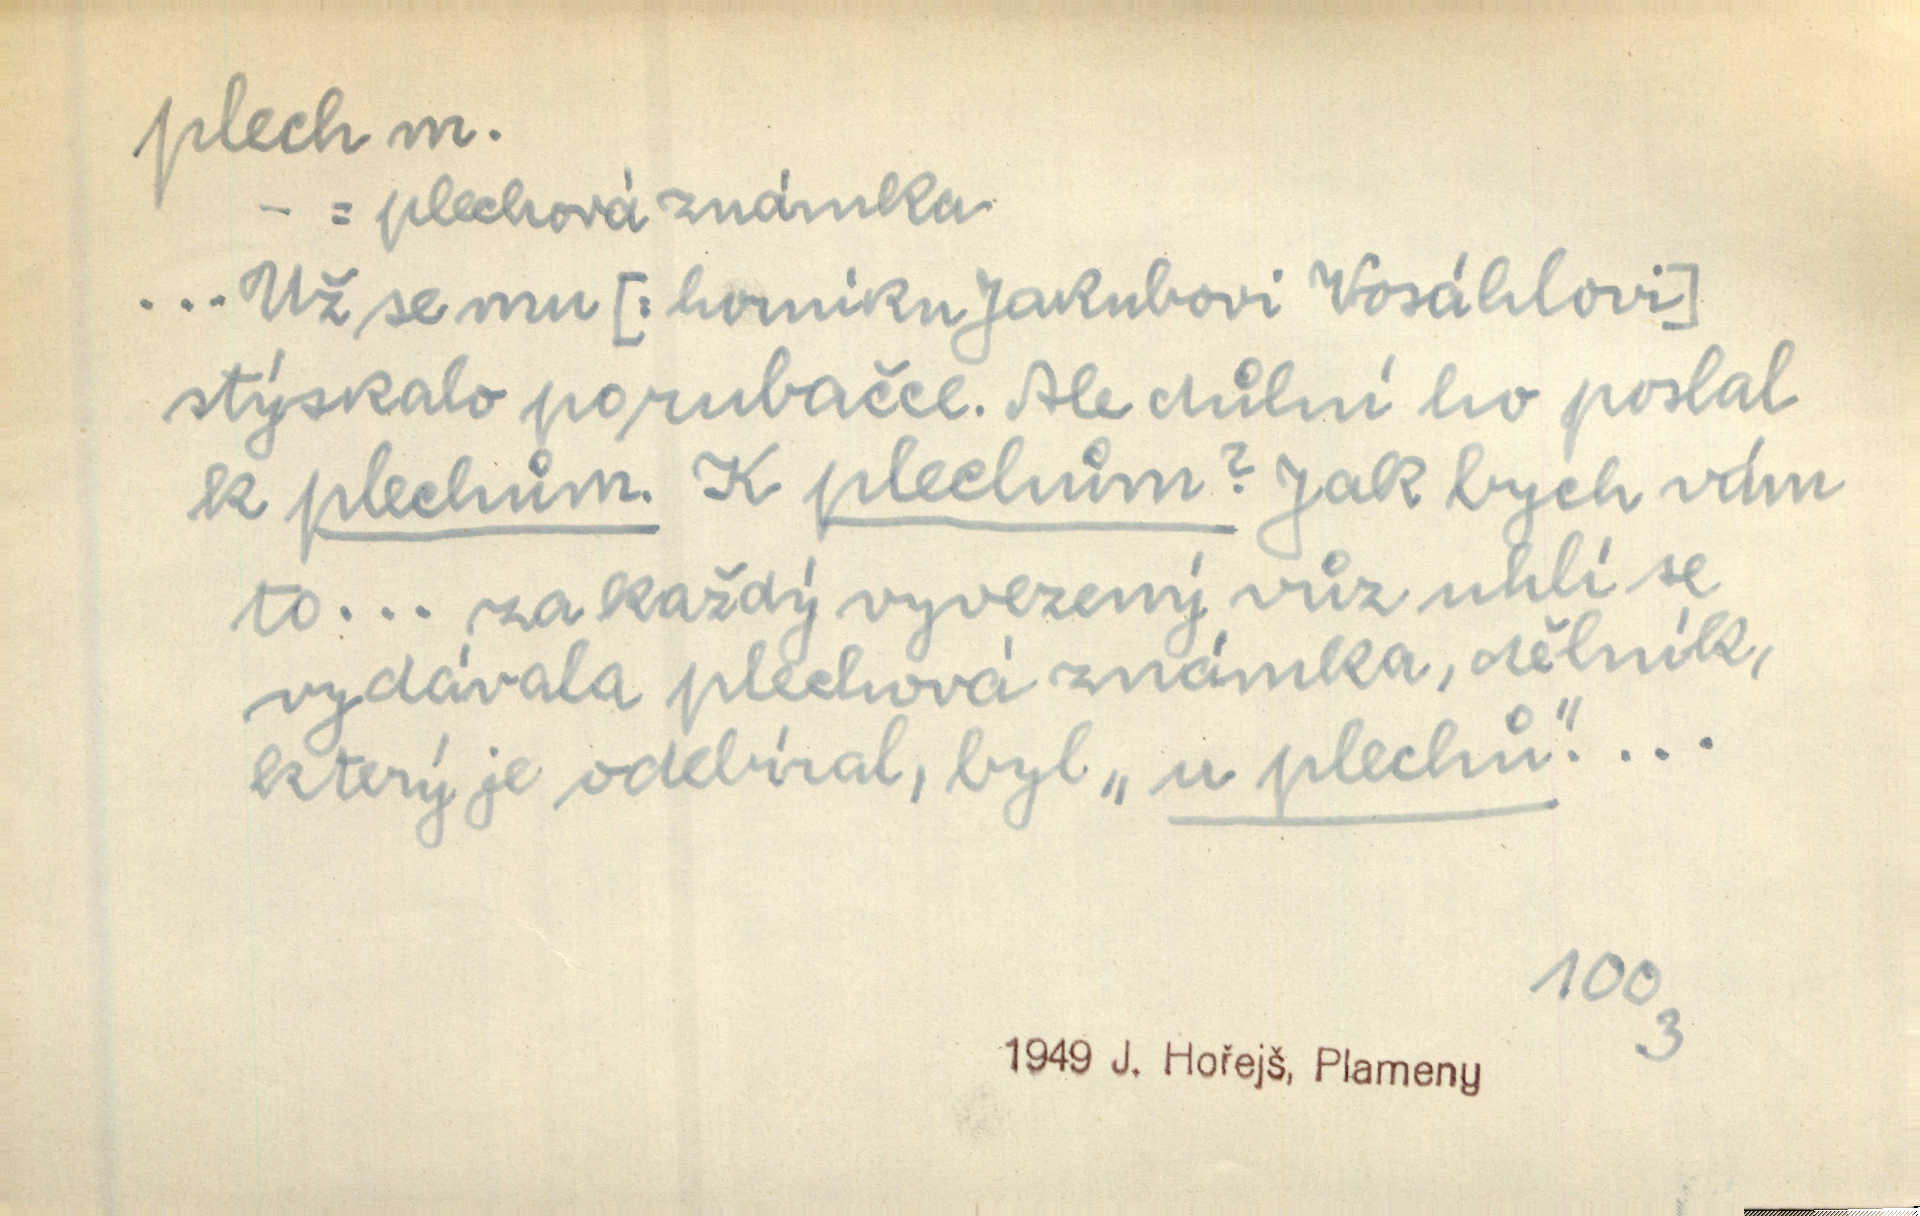 plech m.
- = plechová známka
...Už se mu [: horníku Jakubovi Vosáhlovi]
stýskalo po rubačce. Ale důlní ho poslal
k plechům. K plechům? Jak bych vám
to... za každý vyvezený vůz uhlí se
vydávala plechová známka, dělník,
který je odebíral, byl „u plechů“. ...
100
3
1949 J. Hořejš, Plameny